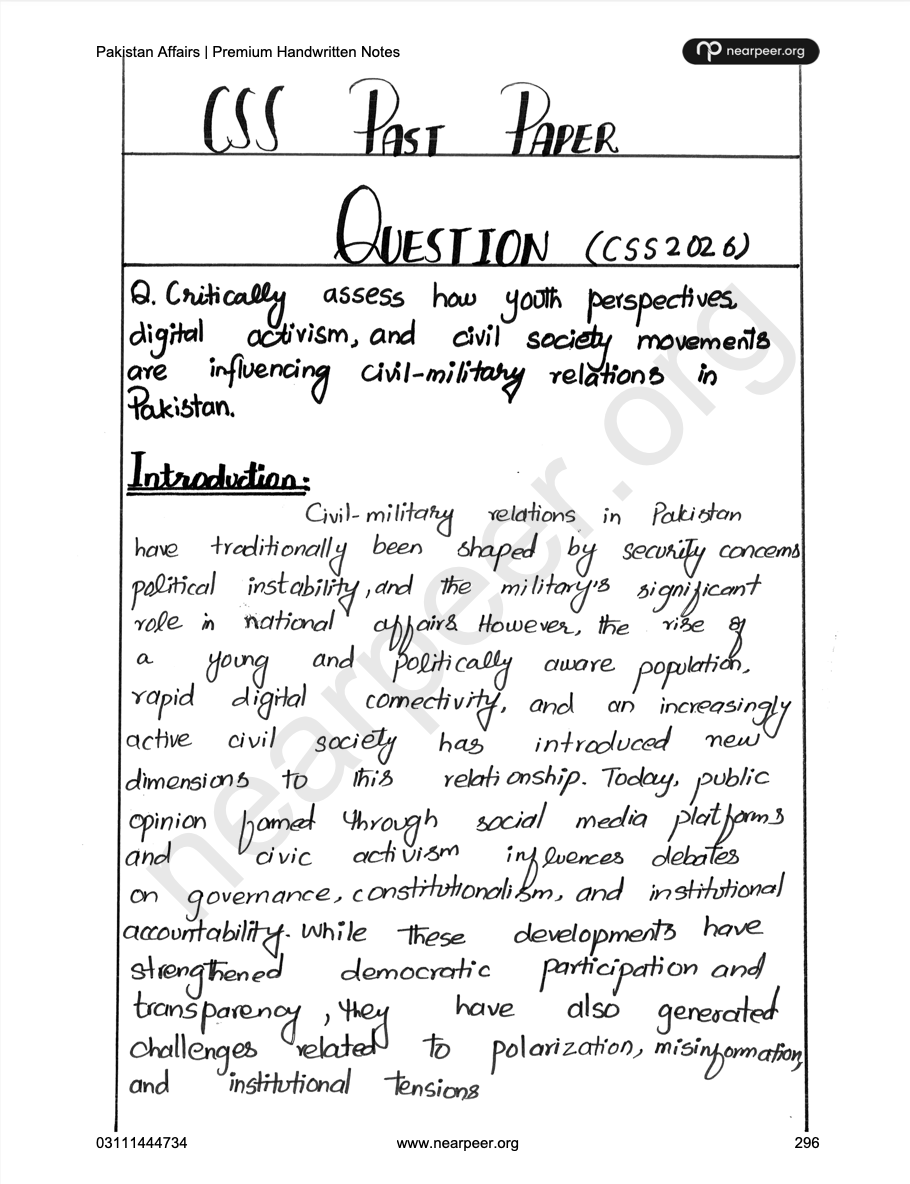 Pakistan Affairs | Premium Handwritten Notes
nearpeer.org
CSS PAST PAPER
QUESTION (CSS 2026)
Q. Critically assess how youth perspectives,
digital activism, and civil society movements
are influencing civil-military relations in
Pakistan.
Introduction:
Civil-military relations in Pakistan
have traditionally been shaped by security concerns
political instability, and the military's significant
role in national affairs However, the rise of
a young and politically aware population,
rapid digital connectivity, and an increasingly
active civil society has introduced new
dimensions to this relationship. Today, public
opinion formed through social media platforms
and civic activism influences debates
on governance, constitutionalism, and institutional
accountability. While these developments have
strengthened democratic participation and
transparency, they have also generated
challenges related to polarization, misinformation,
and institutional tensions
nearpeer.org
03111444734
www.nearpeer.org
296